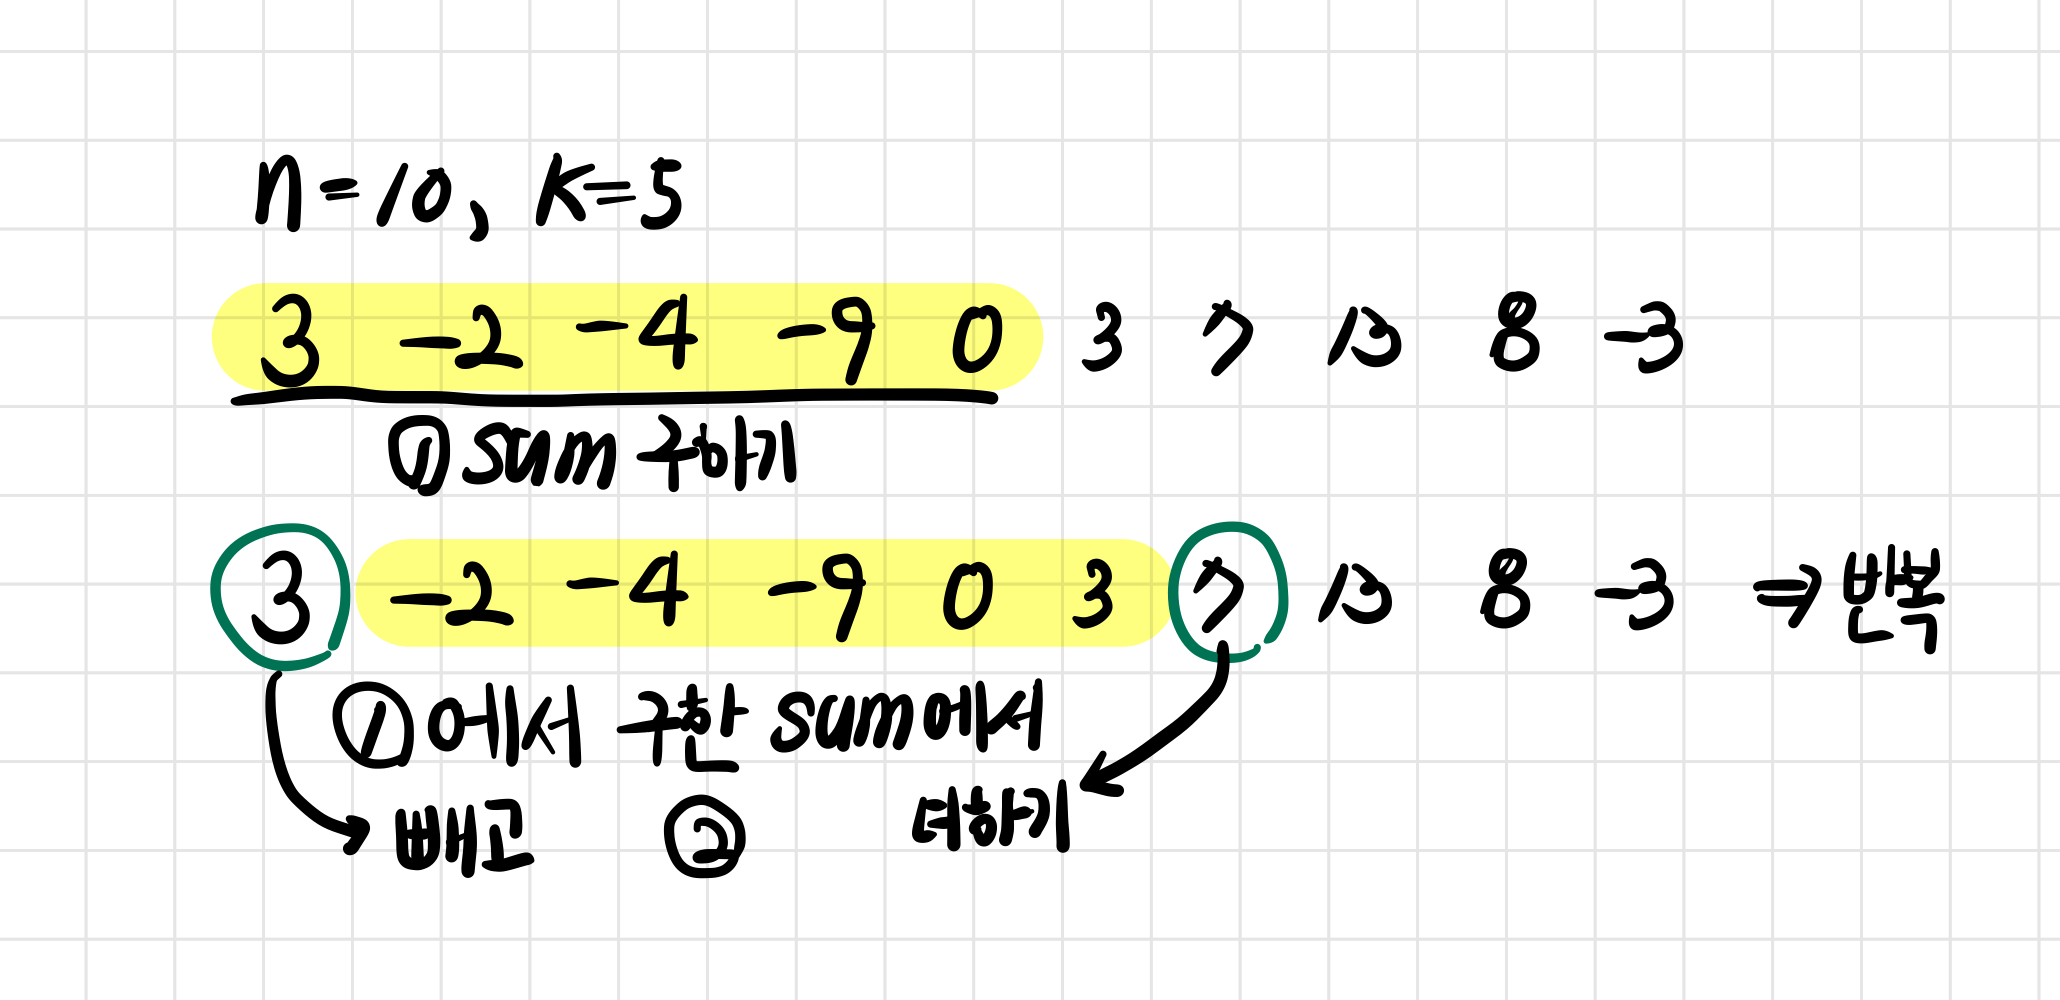 n=10, K=5
3 -2 -4 -9 0 3 7 13 8 -3
① sum 구하기
3 -2 -4 -9 0 3 7 13 8 -3 ⇒ 반복
①에서 구한 sum에서
빼고 ② 더하기